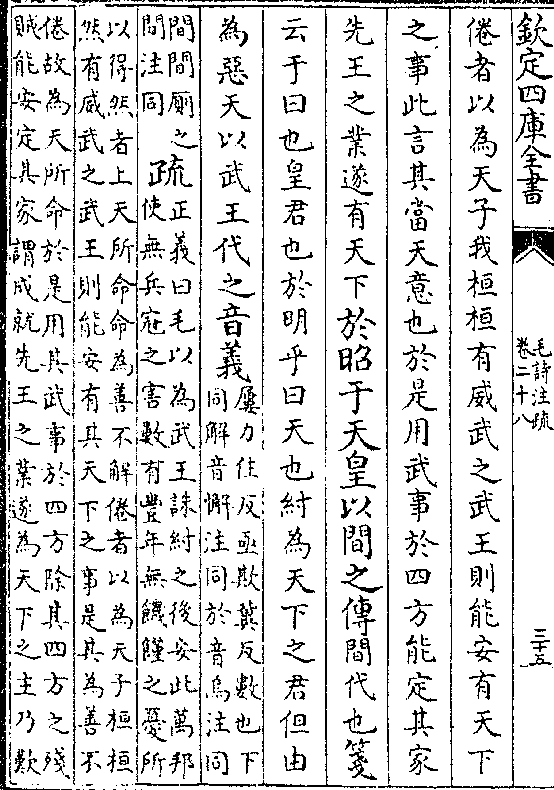 欽定四庫全書
毛詩注疏
卷二十八
三十五
倦者以為天子我桓桓有威武之武王則能安有天下
之事此言其當天意也於是用武事於四方能定其家
先王之業遂有天下於昭于天皇以間之傳間代也箋
云于曰也皇君也於明乎曰天也紂為天下之君但由
為惡天以武王代之音義屢力住反亟欺冀反數也下
同解音懈注同於音烏注同
間間廁之
間注同疏正義曰毛以為武王誅紂之後安此萬邦
使無兵寇之害數有豐年無饑饉之憂所
以得然者上天所命命為善不解倦者以為天子桓桓
然有威武之武王則能安有其天下之事是其為善不
倦故為天所命於是用其武事於四方除其四方之殘
賊能安定其家謂成就先王之業遂為天下之主乃歎